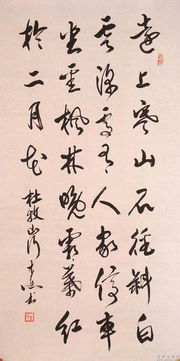 遠上寒山石径斜白
云深處有人家停車
坐爱楓林晚霜葉红
於二月花
杜牧山行 書